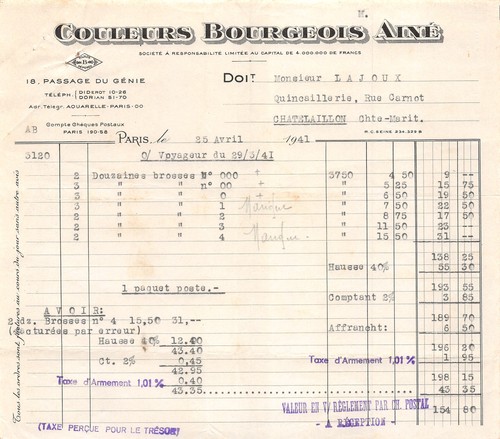 M.
COULEURS BOURGEOIS AINÉ
SOCIÉTÉ A RESPONSABILITÉ LIMITÉE AU CAPITAL DE 4.000.000 DE FRANCS
18, PASSAGE DU GÉNIE
TÉLÉPH. DIDEROT 10-26
DORIAN 51-70
Adr. Télégr. AQUARELLE-PARIS-DO
Compte Chèques Postaux
PARIS 190-58
DOIT Monsieur LAJOUX
Quincaillerie, Rue Carnot
CHATELAILLON Chte-Marit.
AB
R.C. SEINE 234.325 B
PARIS, le 25 Avril 1941
3120 O/ Voyageur du 29/3/41
2 Douzaines brosses N° 000 + 3750 4 50 9 --
3 " " n° 00 + 5 25 15 75
3 " " 0 + 6 50 19 50
3 " " 1 Manque 7 50 22 50
2 " " 2 + 8 75 17 50
2 " " 3 11 50 23 --
2 " " 4 Manque 15 50 31 --
138 25
Hausse 40% 55 30
193 55
1 paquet poste.-
Comptant 2% 3 85
189 70
Affrancht: 6 50
196 20
Taxe d'Armement 1,01% 1 95
198 15
43 35
154 80
AVOIR:
2 dz. Brosses n° 4 15,50 31,--
(facturées par erreur)
Hausse 40% 12.40
43.40
Ct. 2% 0.45
42.95
Taxe d'Armement 1,01% 0.40
43.35
VALEUR EN V/ RÈGLEMENT PAR CH. POSTAL
A RÉCEPTION -
(TAXE PERÇUE POUR LE TRÉSOR)